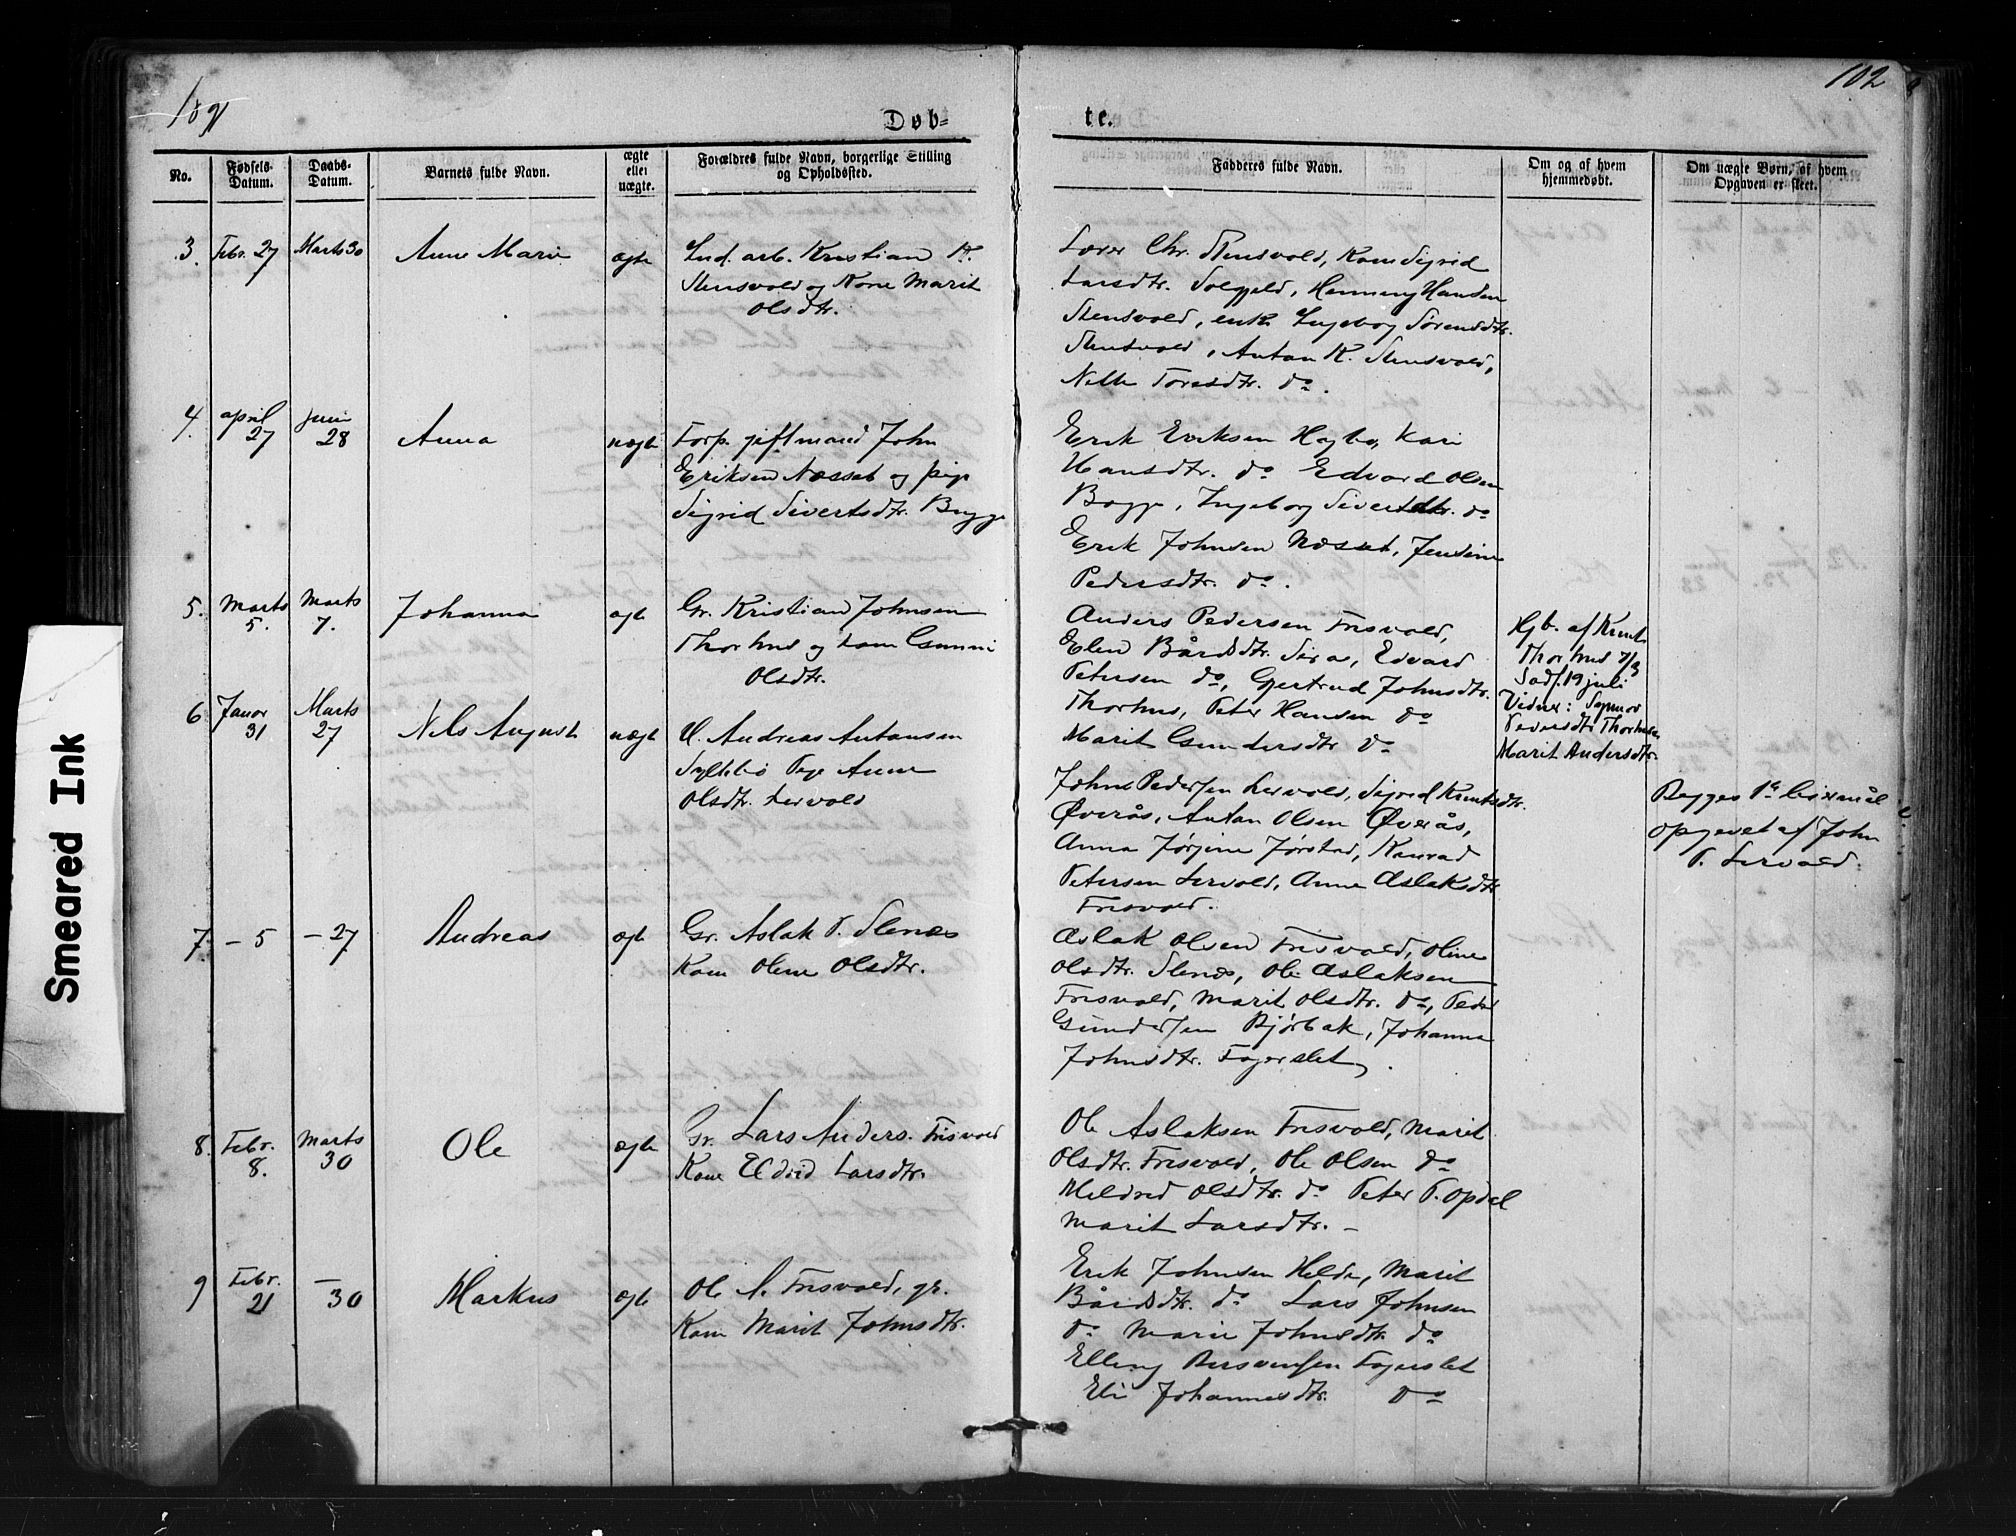 1891
102
Døb-
te.
No.
Fødsels-
Datum.
Daabs-
Datum.
Barnets fulde Navn.
ægte
eller
uægte.
Forældres fulde Navn, borgerlige Stilling
og Opholdssted.
Fadderes fulde Navn.
Om og af hvem
hjemmedøbt.
Om uægte Børn, af hvem
Opgaven er skeet.
3. Febr. 27 Marts 30 Anne Marie ægte
Ind. arb. Kristian K.
Stensvold og Kone Marit
Olsdtr.
Lærer Chr. Stensvold, Kone Sigrid
Larsdtr. Solgjeld, Henning Hansen
Stensvold, enke Ingebor Sørensdtr.
Stensvold, Anton K. Stensvold,
Toresdtr. do.
4. april 27 juni 28 Anna uægte
Forp. giftmand John
Eriksen Næsset og pige
Sigrid Sivertsdtr. Bugge
Erik Eriksen Hagbø, Kari
Hansdtr. do Edvard Olsen
Bogge, Ingeborg Sivertsdtr. do
Erik Johnsen Næsset, Jensine
Pedersdtr. do.
5. Marts 5. Marts 7. Johanna ægte
Gr. Kristian Johnsen
Thorhus og kone Gunni
Olsdtr.
Anders Pedersen Frisvold,
Elen Bårdsdtr. Sira, Edvard
Petersen do, Gjertrud Johnsdtr.
Thorhus, Peter Hansen do
Marit Gundersdtr do
Hjb. af Knut
Thorhus 7/3
Stadf. 19 juli
Vidner:
Pedersdtr Thorhus
Marit Andersdtr.
6 Januar 31 Marts 27 Nils August uægte
U. Andreas Antonsen
Syltebø Pige Anne
Olsdtr. Lervold
John Pedersen Lervold, Sigrid Knutsdtr.
Øverås, Anton Olsen Øverås,
Anna Jørgine Jørstad, Konrad
Petersen Lervold, Anne Aslaksdtr
Frisvold.
Begges 1ste leiermål
opgevet af John
P. Lervold.
7. – 5 – 27 Andreas ægte
Gr. Aslak P. Slenes
Kone Oline Olsdtr.
Aslak Olsen Frisvold, Oline
Olsdtr. Slenes, Ole Aslaksen
Frisvold, Marit Olsdtr. do, Peder
Gundersen Bjørbak, Johanna
Johnsdtr. Fagerslet
8. Febr. 8. Marts 30 Ole ægte
Gr. Lars Anders. Frisvold
Kone Eldrid Larsdtr.
Ole Aslaksen Frisvold, Marit
Olsdtr. Frisvold, Ole Olsen do
Mildrid Olsdtr. do Peter P. Opdøl
Marit Larsdtr. –
9 Febr. 21 – 30 Markus ægte
Ole A. Frisvold, gr.
Kone Marit Johnsdtr.
Erik Johnsen Helde, Marit
Bårdsdtr. do Lars Johnsen
do Marie Johnsdtr. do
Elling Bersvensen Fagerslet
Eli Johannesdtr. do
Smeared Ink